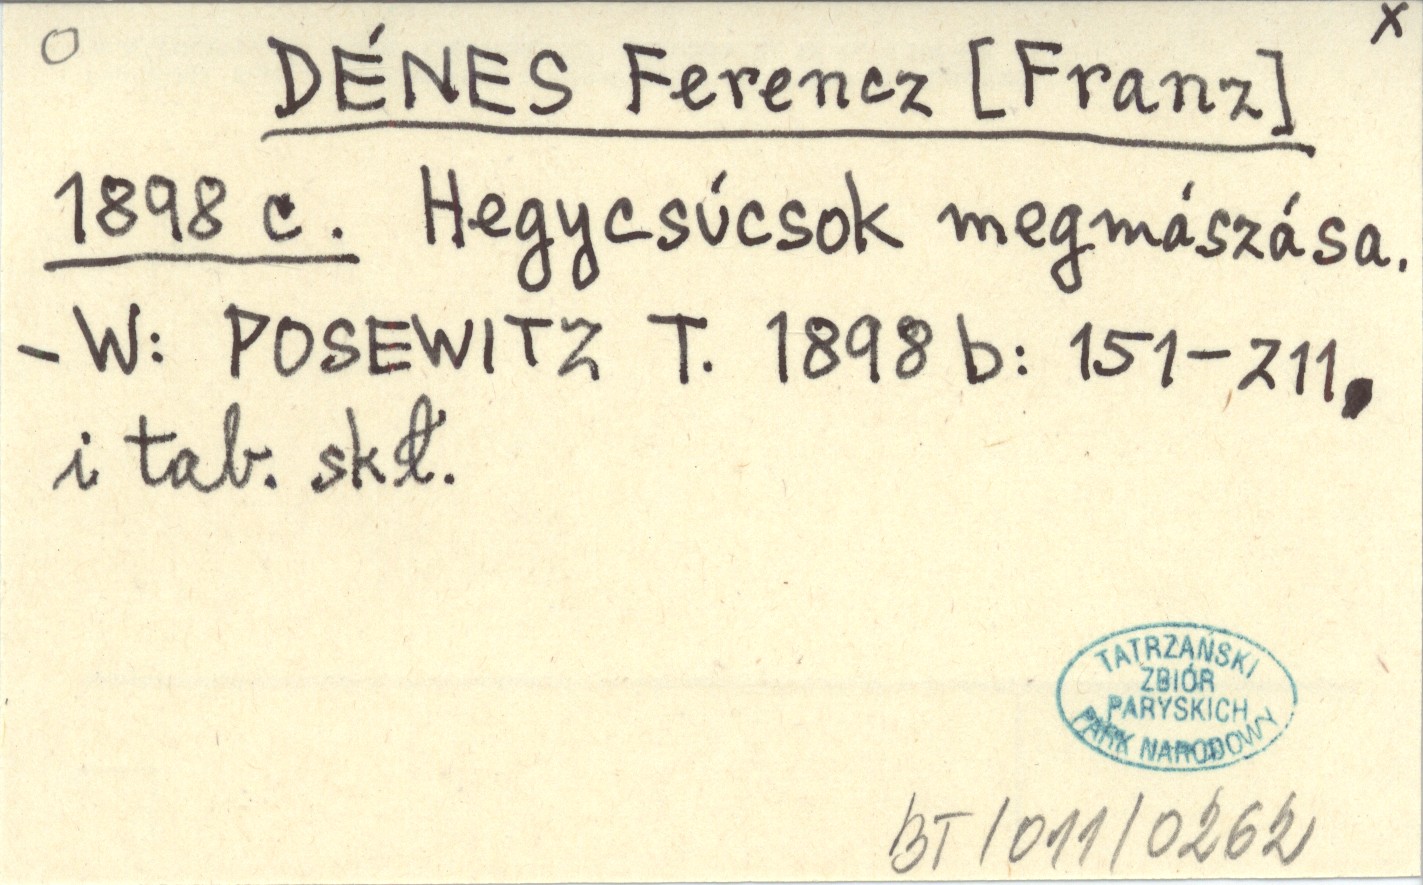 O
x
DÉNES Ferencz [Franz]
1898 c. Hegycsúcsok megmászása.
– W: POSEWITZ T. 1898 b: 151–211,
i tab. skł.
TATRZAŃSKI
ZBIÓR
PARYSKICH
PARK NARODOWY
BT/011/0262